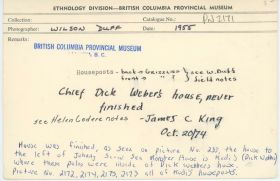 ETHNOLOGY DIVISION—BRITISH COLUMBIA PROVINCIAL MUSEUM
Collection: Catalogue No.: PN 2171
Photographer: WILSON DUFF Date: 1955
Remarks:
BRITISH COLUMBIA PROVINCIAL MUSEUM
Houseposts- back = Grizzlies } see W. Duff's
front = field notes
Chief Dick Weber's house, never
finished
see Helen Codere notes - James C King
Oct. 20/74
House was finished, as seen on Picture No. 235, the house to
the left of Johnny Scow Sea Monster House is Kodi's (Dick Webber)
where these poles were inside of Dick Webber's house.
Picture No. 2172, 2174, 2175, 2173 all of Kodi's houseposts.